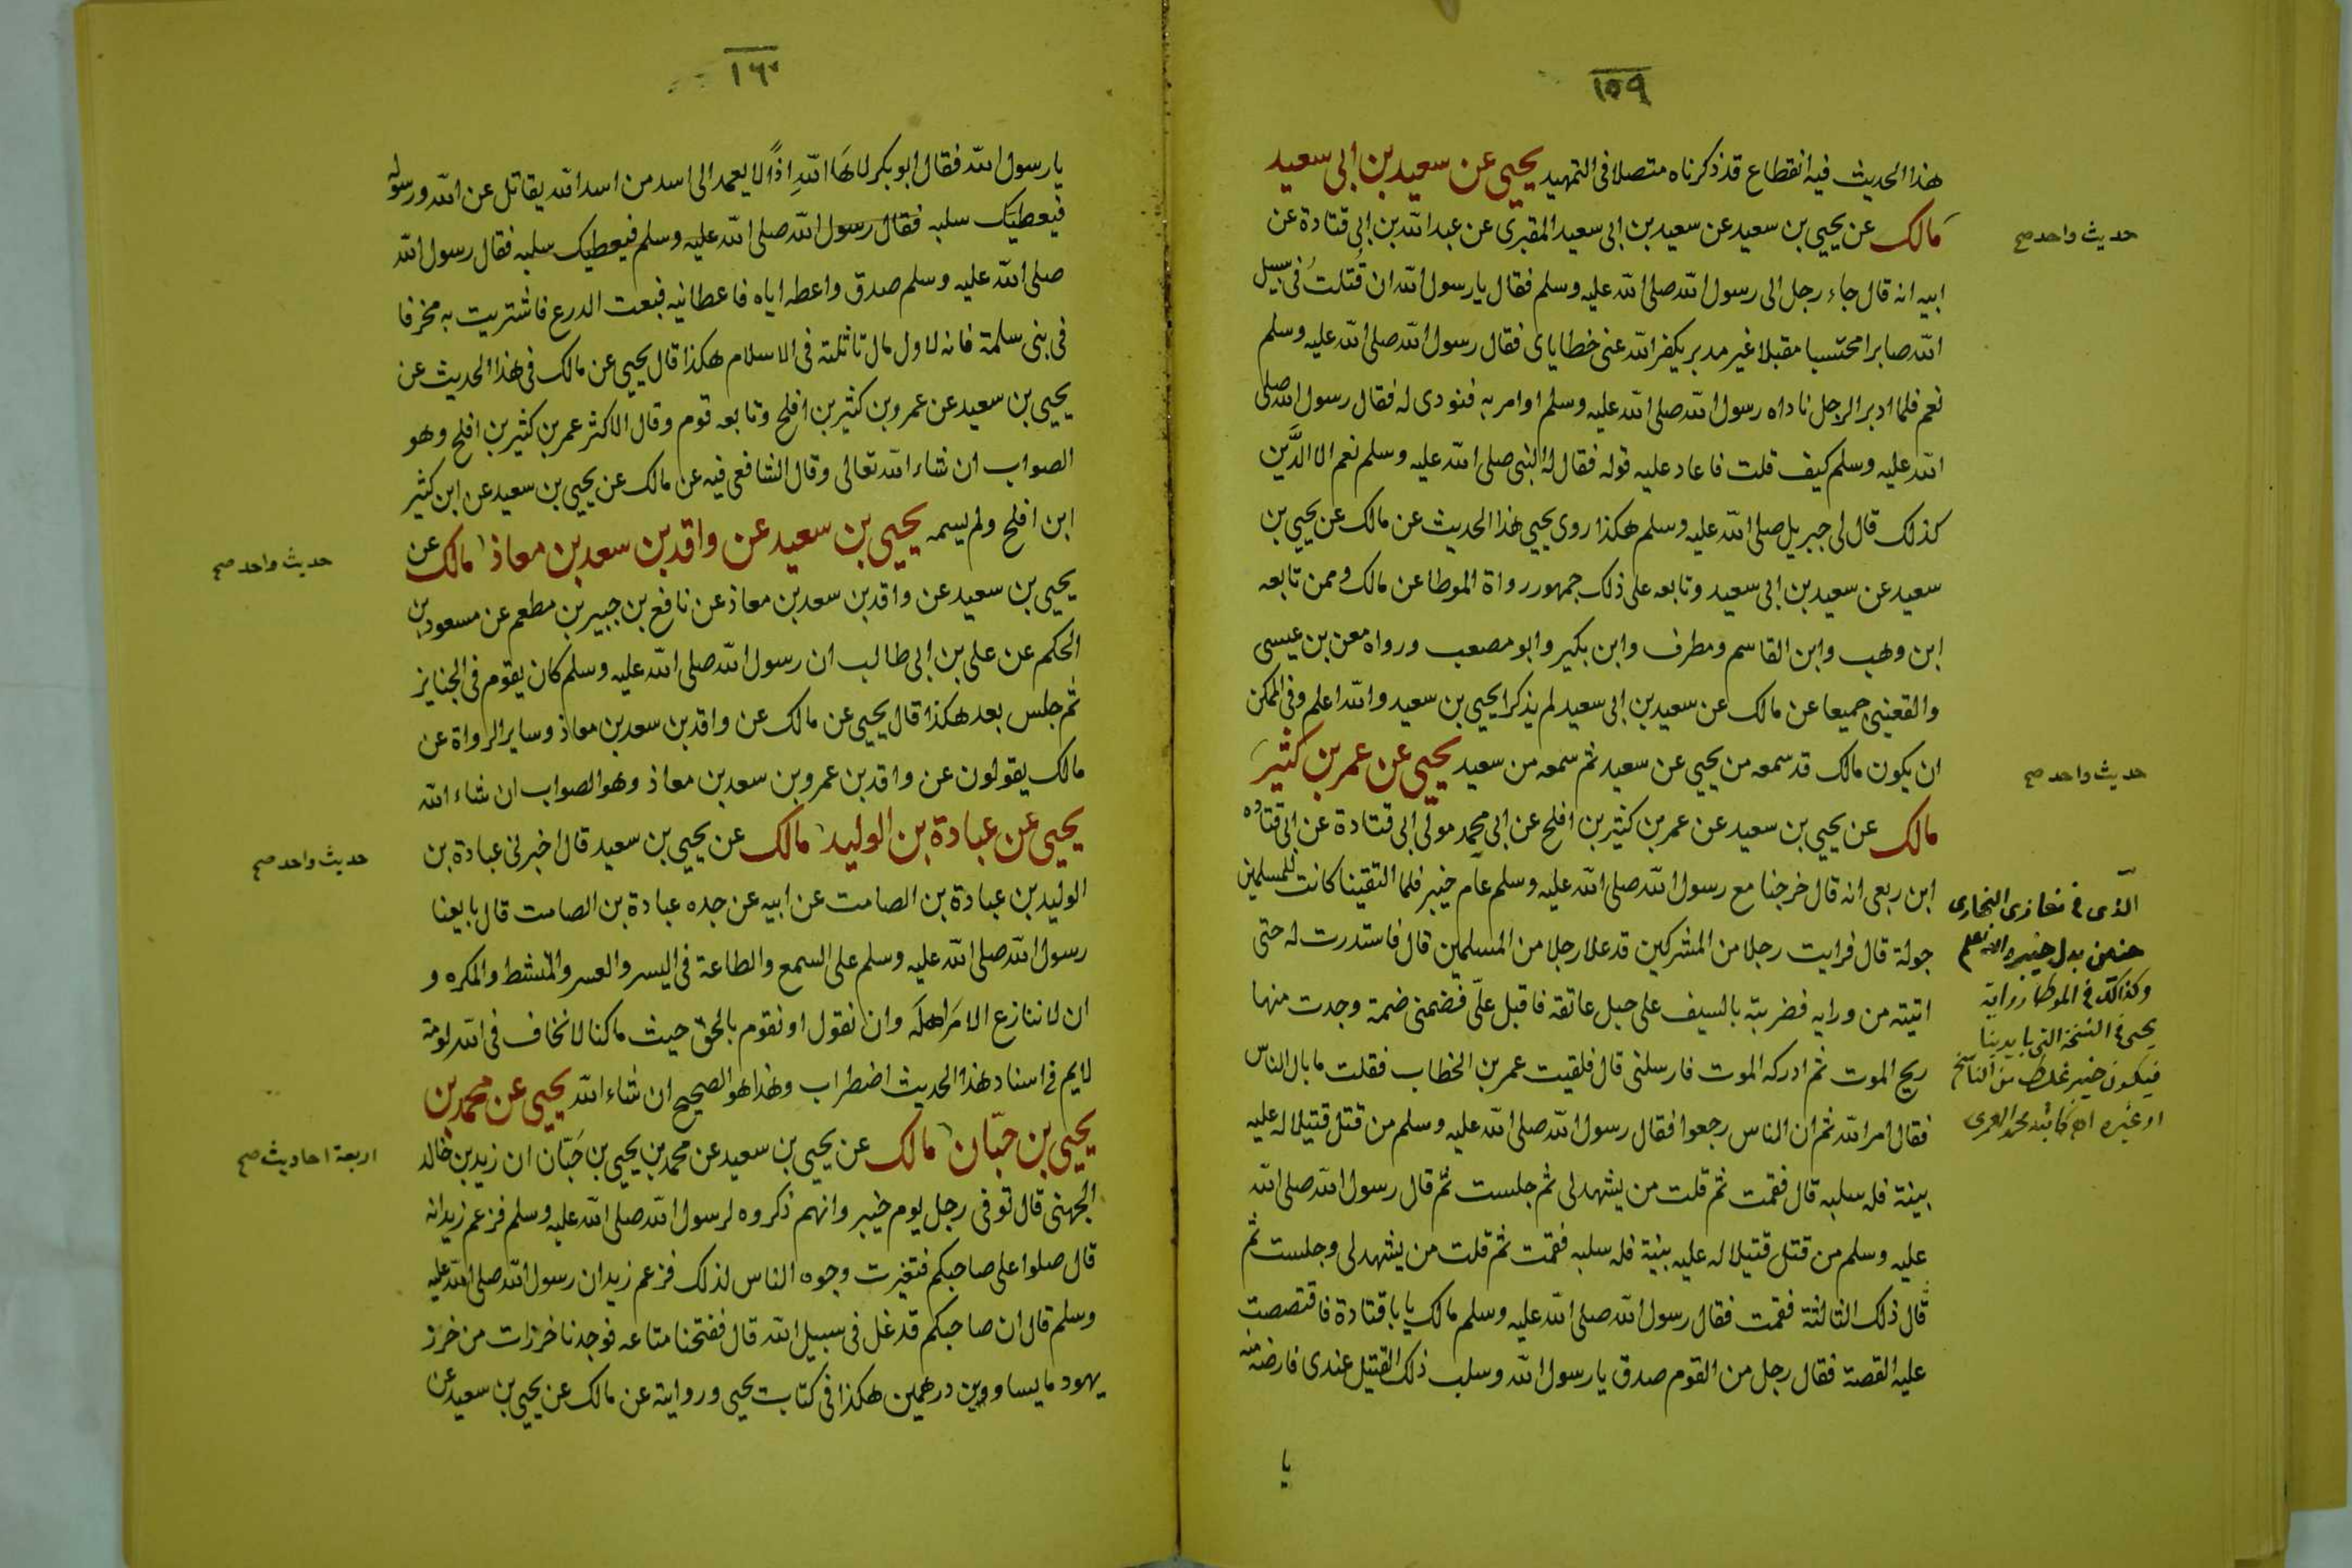 ١٥٩
هذا الحديث فيه انقطاع قد ذكرناه متصلا فى التمهيد يحيى عن سعيد بن ابى سعيد
مالك عن يحيى بن سعيد عن سعيد بن ابى سعيد المقبرى عن عبد الله بن ابى قتادة عن
حديث واحد صح
ابيه انه قال جاء رجل الى رسول الله صلى الله عليه وسلم فقال يا رسول الله ان قُتلتُ فى سبيل
الله صابرا محتسبا مقبلا غير مدبر يكفر الله عنى خطاياى فقال رسول الله صلى الله عليه وسلم
نعم فلما ادبر الرجل ناداه رسول الله صلى الله عليه وسلم او امر به فنودى له فقال رسول الله صلى
الله عليه وسلم كيف قلت فاعاد عليه قوله فقال له النبى صلى الله عليه وسلم نعم الا الدَّين
كذلك قال لى جبريل صلى الله عليه وسلم هكذا روى يحيى هذا الحديث عن مالك عن يحيى بن
سعيد عن سعيد بن ابى سعيد وتابعه على ذلك جمهور رواة الموطا عن مالك وممن تابعه
ابن وهب وابن القاسم ومطرف وابن بكير وابو مصعب ورواه معن بن عيسى
والقعنبى جميعا عن مالك عن سعيد بن ابى سعيد لم يذكرا يحيى بن سعيد والله اعلم وفى الممكن
ان يكون مالك قد سمعه من يحيى عن سعيد ثم سمعه من سعيد يحيى عن عمر بن كثير
حديث واحد صح
مالك عن يحيى بن سعيد عن عمر بن كثير بن افلح عن ابى محمد مولى ابى قتادة عن ابى قتاده
ابن ربعى انه قال خرجنا مع رسول الله صلى الله عليه وسلم عام خيبر فلما التقينا كانت للمسلمين
جولة قال فرايت رجلا من المشركين قد علا رجلا من المسلمين قال فاستدرت له حتى
اتيته من ورايه فضربته بالسيف على حبل عاتقه فاقبل علىّ فضمنى ضمة وجدت منها
ريح الموت ثم ادركه الموت فارسلنى قال فلقيت عمر بن الخطاب فقلت ما بال الناس
فقال امر الله ثم ان الناس رجعوا فقال رسول الله صلى الله عليه وسلم من قتل قتيلا له عليه
بينة فله سلبه قال فقمت ثم قلت من يشهد لى ثم جلست ثم قال رسول الله صلى الله
عليه وسلم من قتل قتيلا له عليه بينة فله سلبه فقمت ثم قلت من يشهد لى وجلست ثم
قال ذلك الثالثة فقمت فقال رسول الله صلى الله عليه وسلم مالك يا با قتادة فاقتصصت
عليه القصة فقال رجل من القوم صدق يا رسول الله وسلب ذلك القتيل عندى فارضه منه
يا
الذى فى مغازى البخارى
حنين بدل خيبر والله اعلم
وكذلك فى الموطا رواية
يحيى فى النسخة التى بايدينا
فيكون خيبر غلط من الناسخ
او غيره اه كاتبه محمد العمرى
١٦٠
يا رسول الله فقال ابو بكر لا هَا اللهِ اذًا لا يعمد الى اسد من اسد الله يقاتل عن الله ورسوله
فيعطيك سلبه فقال رسول الله صلى الله عليه وسلم فيعطيك سلبه فقال رسول الله
صلى الله عليه وسلم صدق واعطه اياه فاعطانيه فبعت الدرع فاشتريت به مخرفا
فى بنى سلمة فانه لاول مال تاثلته فى الاسلام هكذا قال يحيى عن مالك فى هذا الحديث عن
يحيى بن سعيد عن عمرو بن كثير بن افلح وتابعه قوم وقال الاكثر عمر بن كثير بن افلح وهو
الصواب ان شاء الله تعالى وقال الشافعى فيه عن مالك عن يحيى بن سعيد عن ابن كثير
ابن افلح ولم يسمه يحيى بن سعيد عن واقد بن سعد بن معاذ مالك عن
حديث واحد صح
يحيى بن سعيد عن واقد بن سعد بن معاذ عن نافع بن جبير بن مطعم عن مسعود بن
الحكم عن على بن ابى طالب ان رسول الله صلى الله عليه وسلم كان يقوم فى الجنايز
ثم جلس بعد هكذا قال يحيى عن مالك عن واقد بن سعد بن معاذ وساير الرواة عن
مالك يقولون عن واقد بن عمرو بن سعد بن معاذ وهو الصواب ان شاء الله
يحيى عن عبادة بن الوليد مالك عن يحيى بن سعيد قال اخبرنى عبادة بن
حديث واحد صح
الوليد بن عبادة بن الصامت عن ابيه عن جده عبادة بن الصامت قال بايعنا
رسول الله صلى الله عليه وسلم على السمع والطاعة فى اليسر والعسر والمنشط والمكره و
ان لا ننازع الامرَ اهلَه وان نقول او نقوم بالحق حيث ما كنا لا نخاف فى الله لومة
لايم فى اسناد هذا الحديث اضطراب وهذا هو الصحيح ان شاء الله يحيى عن محمد بن
يحيى بن حبّان مالك عن يحيى بن سعيد عن محمد بن يحيى بن حَبّان ان زيد بن خالد
اربعة احاديث صح
الجهنى قال توفى رجل يوم خيبر وانهم ذكروه لرسول الله صلى الله عليه وسلم فزعم زيد انه
قال صلوا على صاحبكم فتغيرت وجوه الناس لذلك فزعم زيد ان رسول الله صلى الله عليه
وسلم قال ان صاحبكم قد غل فى سبيل الله قال ففتحنا متاعه فوجدنا خرزات من خرز
يهود ما يساووين درهمين هكذا فى كتاب يحيى وروايته عن مالك عن يحيى بن سعيد عن